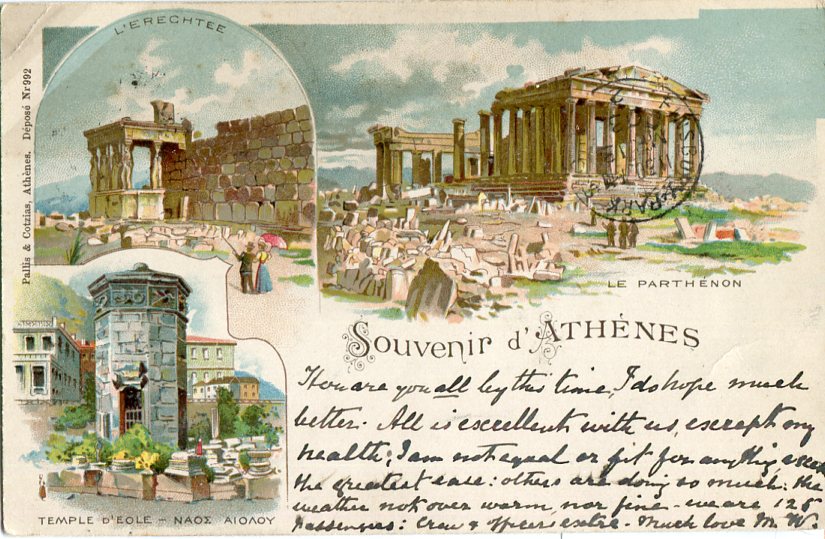 L'ERECHTÉE
Pallis & Cotzias, Athènes. Déposé Nr 992
LE PARTHÉNON
Souvenir d'ATHÉNES
TEMPLE D'EOLE – ΝΑΟΣ ΑΙΟΛΟΥ
How are you all by this time, I do hope much
better. All is excellent with us, except my
health; I am not equal or fit for anything, except
the greatest ease: others are doing so much: the
weather not over warm, nor fine - we are 128
passengers: Crew & officers extra - Much love M. W.